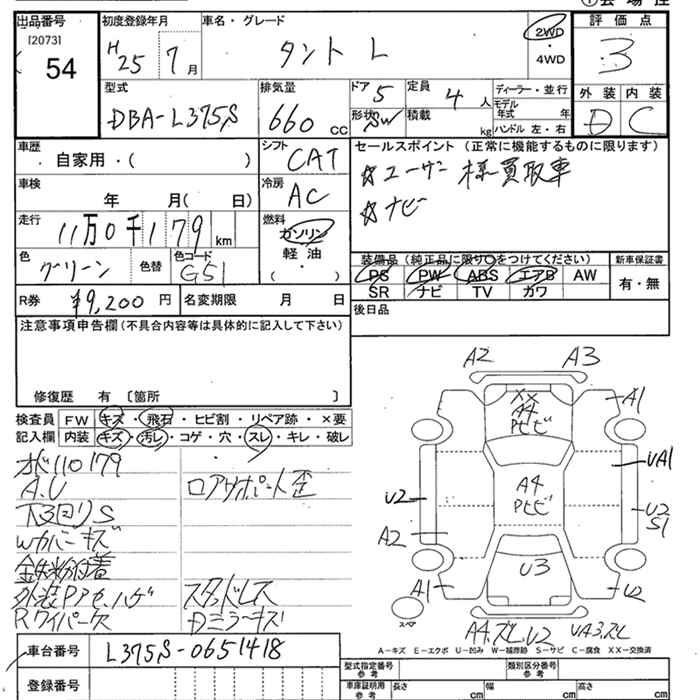 出品番号 初度登録年月 車名・グレード 評価点
[2073]
54 H25 7月 タント L 2WD 3
・4WD
型式 排気量 ドア 5 定員 4人 ディーラー・並行 外装 内装
DBA-L375S 660cc 形状 SW 積載 kg モデル年式 年 D C
ハンドル 左・右
車歴 自家用・( ) シフト CAT セールスポイント (正常に機能するものに限ります)
車検 年 月( 日) 冷房 AC ☆ユーザー様買取車
走行 11万0千179km 燃料 ガソリン ☆ナビ
軽油
・( )
色 グリーン 色替 色コード G51
装備品(純正品に限り○をつけてください) 新車保証書
PS PW ABS エアB AW 有・無
SR ナビ TV カワ
R券 ¥9,200円 名変期限 月 日 後日品
注意事項申告欄(不具合内容等は具体的に記入して下さい)
修復歴 有〔箇所 〕
検査員 FW キズ・飛石・ヒビ割・リペア跡・×要
記入欄 内装 キズ・汚レ・コゲ・穴・スレ・キレ・破レ
オド110179
A.U ロアサポート歪
下回りS
Wカバーキズ
鉄粉付着
外装Pアセ、ハゲ スタッドレス
Rワイパー欠 Dミラーキズ
車台番号 L375S-0651418
登録番号
A2 A3
XX A1
A4
Pヒビ
UA1
U2 A4 U2
Pヒビ S1
A2
U3
A1 U2
スペア
A4.ズレ.U2 UA3.ズレ
A-キズ E-エクボ U-凹み W-補修跡 S-サビ C-腐食 XX-交換済
型式指定番号 参考 類別区分番号 参考
車庫証明用 参考 長さ cm 幅 cm 高さ cm